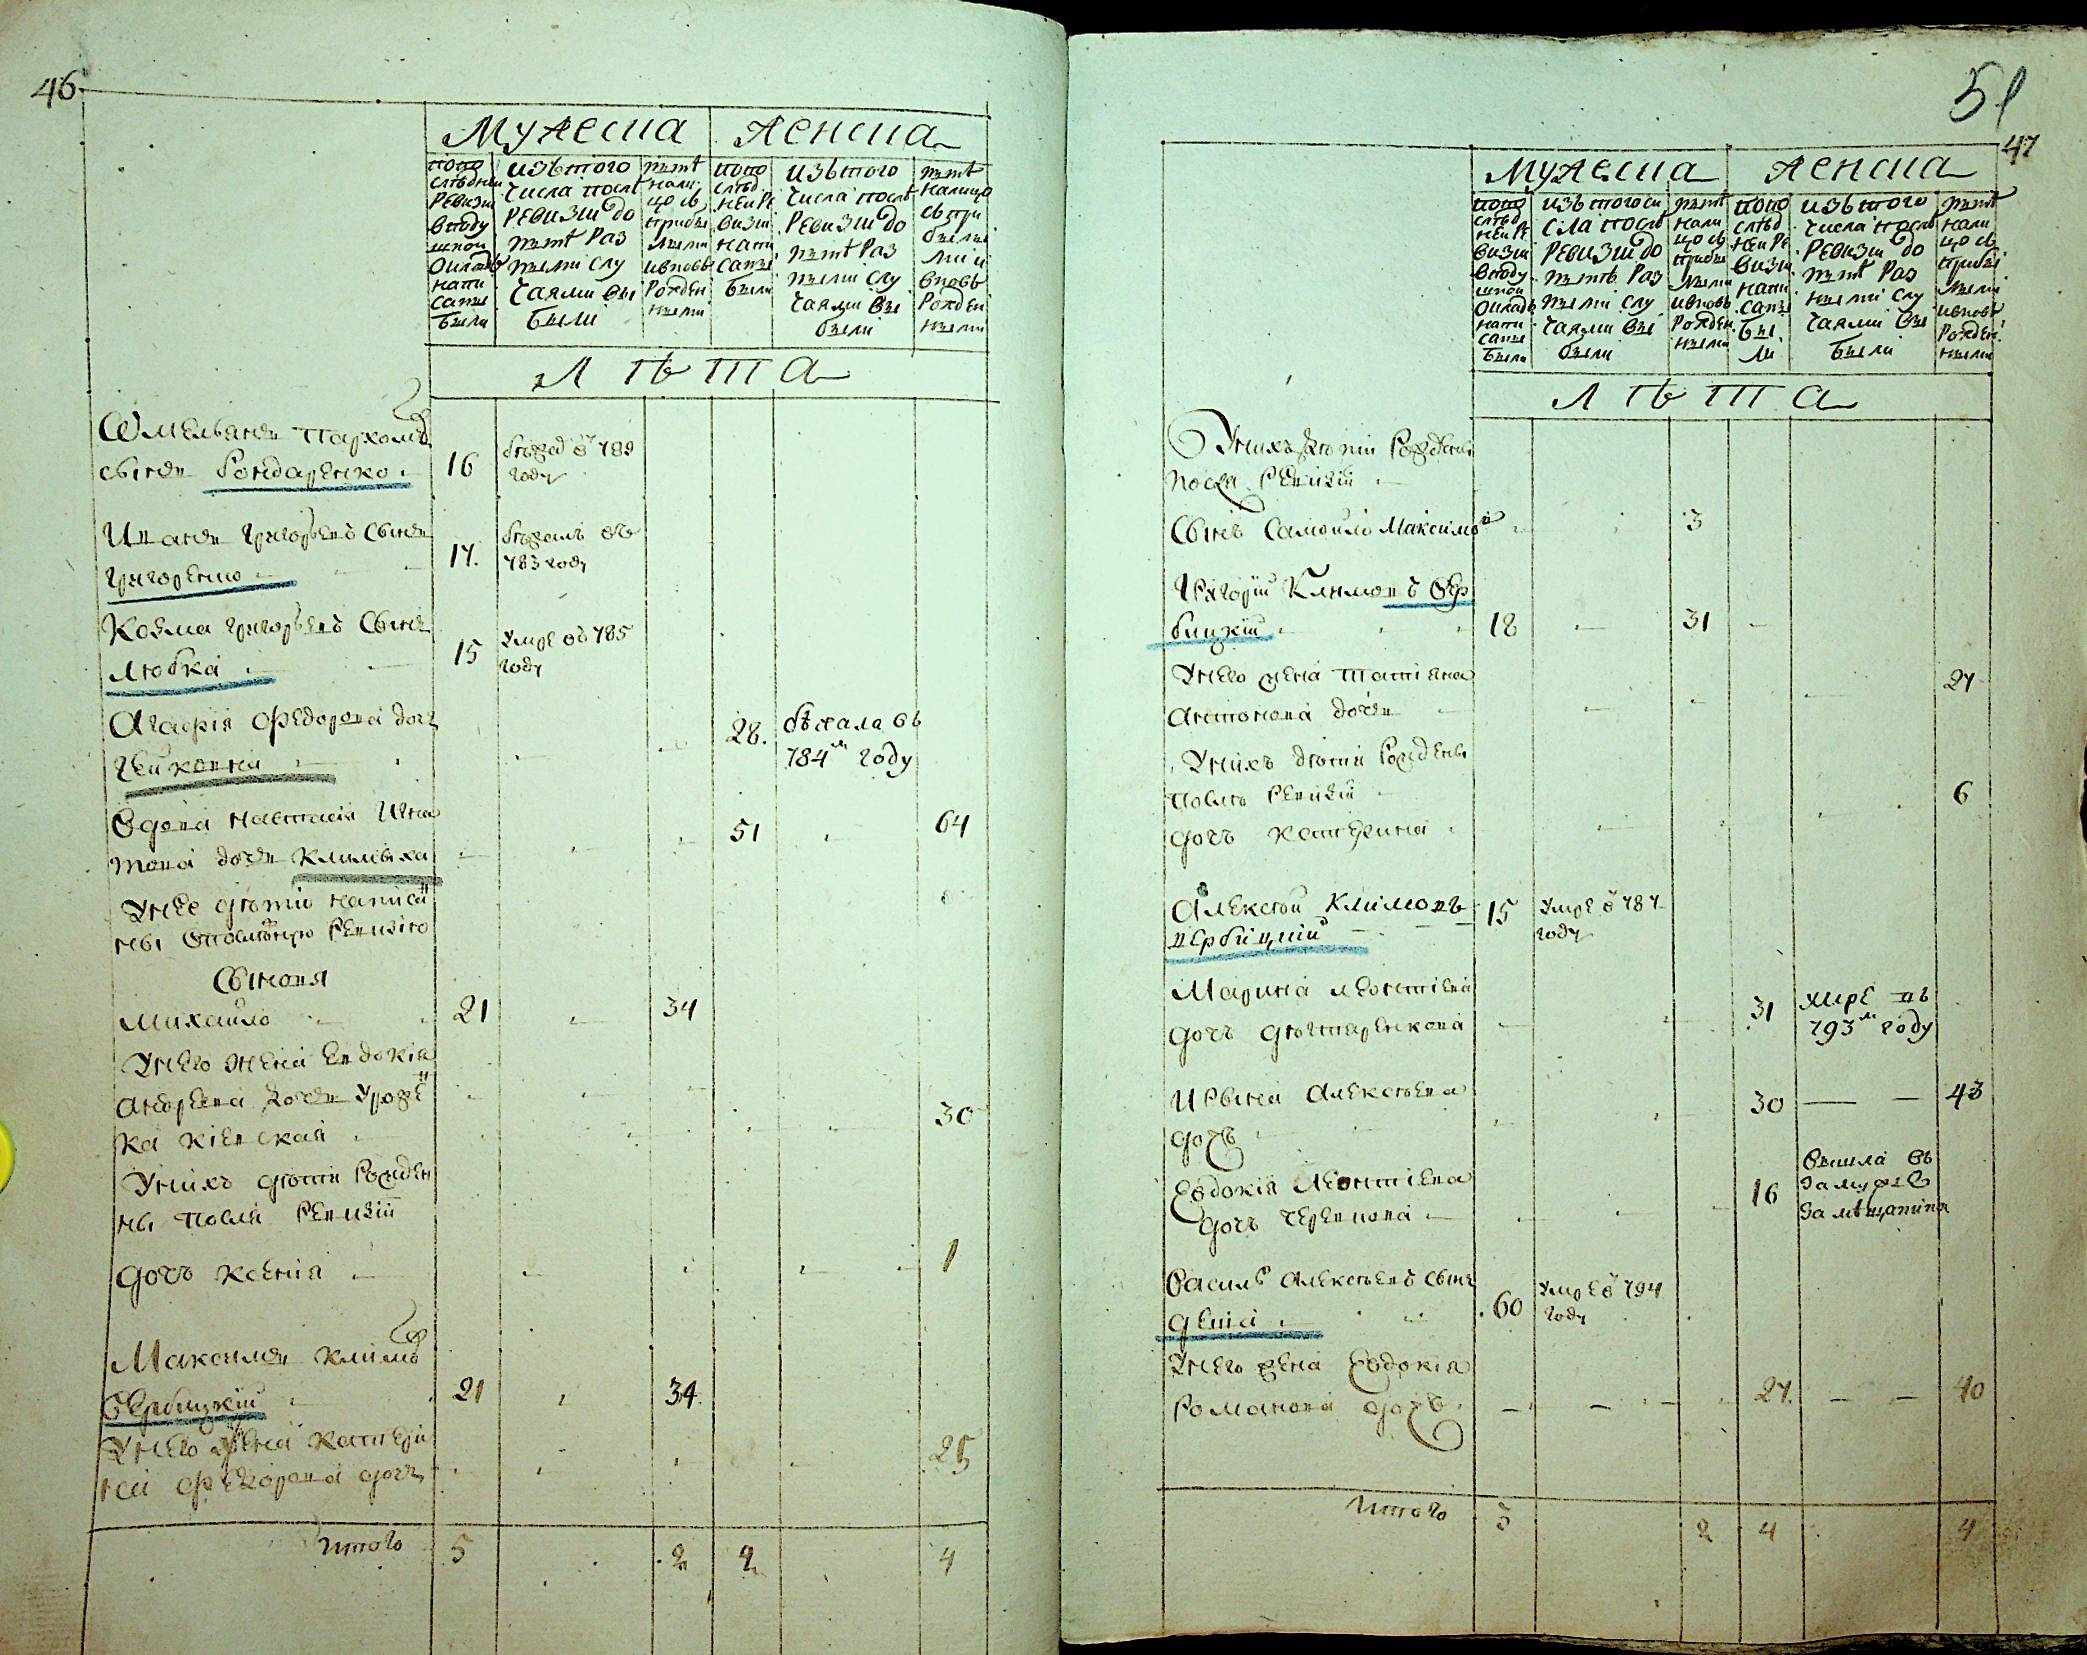 46
Мужеска Женска
попо
следней
ревизии
в поду
шной
окладъ
напи
саны
были
изътого
числа после
ревизии до
ныне раз
ными слу
чаями вы
были
ныне
нали
цо съ
прибы
лыми
ивновь
рожден
ными
попо
след
ней ре
визии
напи
саны
были
изътого
числа после
ревизии до
ныне раз
ными слу
чаями вы
были
ныне
налицо
съ при
былы
ми и
вновь
рожден
ными
Лѣта
Омельянъ Пархомовъ
сынъ Бондаренко 16 бежал в 789
году
Иванъ Григорьевъ сынъ
Григоренко 17. бежалъ въ
783 году
Козма Григорьевъ сынъ
Любка 15 умре въ 785
году
Агафія Федорова дочь
Гейковна 28. бежала въ
784м году
Вдова Настасія Игна
това дочь Климыха 51 64
У нее дѣти написа
ны впослѣднюю ревизію
Сыновя
Михайло 21 34
У него жена Евдокія
Андреева дочь уроже
ка кіевская 30
У нихъ дѣти рожден
ны после ревизіи
дочь Ксенія 1
Максимъ Климовъ
Вербицкій 21 34.
У него жена Катери
на Федорова дочь 25
Итого 5 2 2 4
51
47
Мужеска Женска
попо
след
ней ре
визии
в поду
шной
окладъ
напи
саны
были
изътого чи
сла после
ревизии до
ныне раз
ными слу
чаями вы
были
ныне
нали
цо съ
прибы
лыми
ивновь
рожден
ными
попо
след
ней ре
визии
напи
саны
бы
ли
изътого
числа после
ревизии до
ныне раз
ными слу
чаями вы
были
ныне
нали
цо съ
прибы
лыми
ивновь
рожден
ными
Лѣта
У нихъ дѣти рожденны
после ревизіи
Сынъ Самойло Максимовъ 3
Григорій Климовъ Вер
бицкій 18 31
У него жена Татіяна
Антонова дочь 27
У нихъ дѣти рожденны
после ревизіи
дочь Катерина 6
Алексѣй Климовъ
Вербицкій 15 умре в 787
году
Марина Леонтіева
дочь Дѣхтяренкова 31 умре въ
793м году
Ирына Алексѣева
дочь 30 43
Евдокія Леонтіева
дочь Черенкова 16 вышла въ
замужъ
за мѣщанина
Василь Алексѣевъ сынъ
60 умре в 794
году
У него жена Евдокія
Романова дочь 27. 40
Итого 3 2 4 4